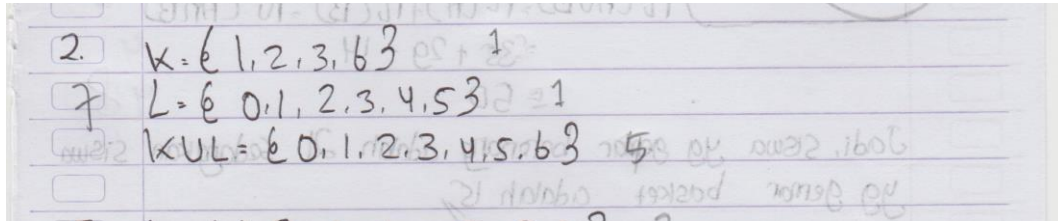 2. K = { 1, 2, 3, 6 } 1
7 L = { 0, 1, 2, 3, 4, 5 } 1
K ∪ L = { 0, 1, 2, 3, 4, 5, 6 } 5